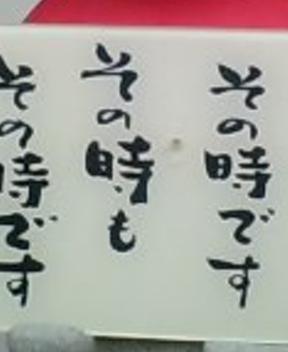 その時です
その時も
その時です